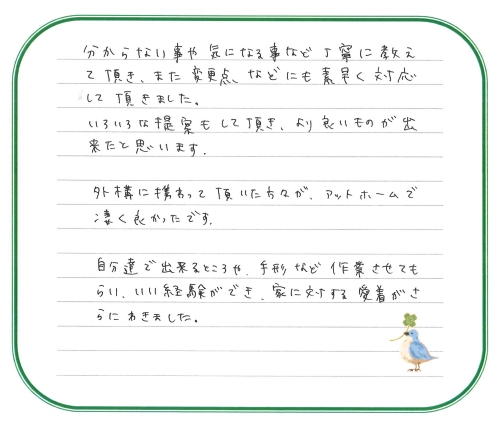 分からない事や気になる事など丁寧に教え
て頂き、また変更点などにも素早く対応
して頂きました。
いろいろな提案もして頂き、より良いものが出
来たと思います。
外構に携わって頂いた方々が、アットホームで
凄く良かったです。
自分達で出来るところや、手形など作業させても
らい、いい経験ができ、家に対する愛着がさ
らにわきました。